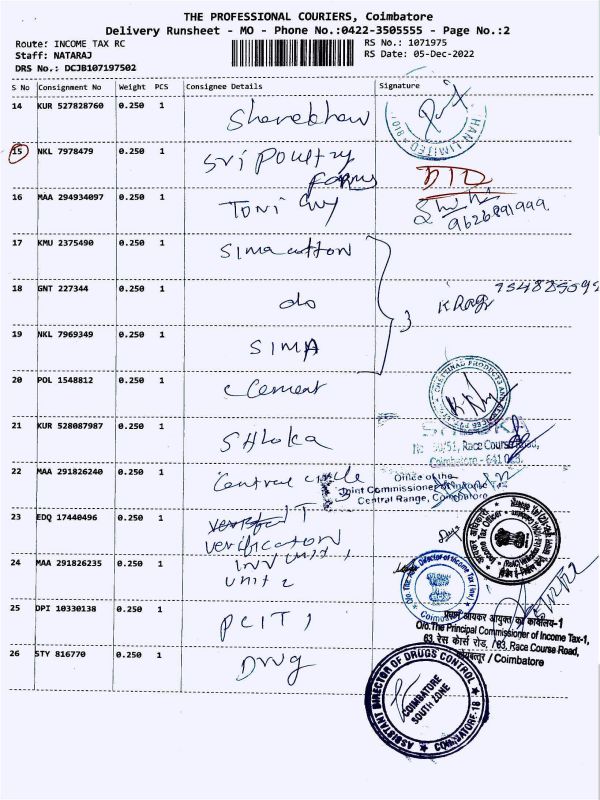 THE PROFESSIONAL COURIERS, Coimbatore
Delivery Runsheet - MO - Phone No.:0422-3505555 - Page No.:2
Route: INCOME TAX RC
RS No.: 1071975
Staff: NATARAJ
RS Date: 05-Dec-2022
DRS No.: DCJB107197502
S No Consignment No Weight PCS Consignee Details Signature
14 KUR 527828760 0.250 1
HAN LIMITED
15 NKL 7978479 0.250 1 Sri Poultry
Farms
16 MAA 294934097 0.250 1 Toni Guy
9626891999
17 KMU 2375490 0.250 1 Sima cotton
18 GNT 227344 0.250 1 do
3
19 NKL 7969349 0.250 1 SIMA
20 POL 1548812 0.250 1 Cement
CHETTINAD PRODUCTS
21 KUR 528087987 0.250 1 SHloka
Race Course Road,
Coimbatore - 641
22 MAA 291826240 0.250 1 Central circle
Office of the
Joint Commissioner of Income Tax
Central Range, Coimbatore
23 EDQ 17440496 0.250 1 IT
verification
Income Tax Officer
24 MAA 291826235 0.250 1 Inv unit 1
unit 2
Director of Income Tax (Inv)
Coimbatore
25 DPI 10330138 0.250 1 PCIT 1
प्रधान आयकर आयुक्त का कार्यालय-1
O/o.The Principal Commissioner of Income Tax-1,
63, रेस कोर्स रोड, / 63, Race Course Road,
कोयम्बत्तूर / Coimbatore
26 STY 816770 0.250 1 Drug
ASSISTANT DIRECTOR OF DRUGS CONTROL
COIMBATORE
SOUTH ZONE
COIMBATORE-18